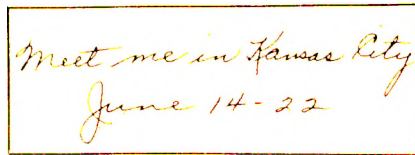 Meet me in Kansas City
June 14-22